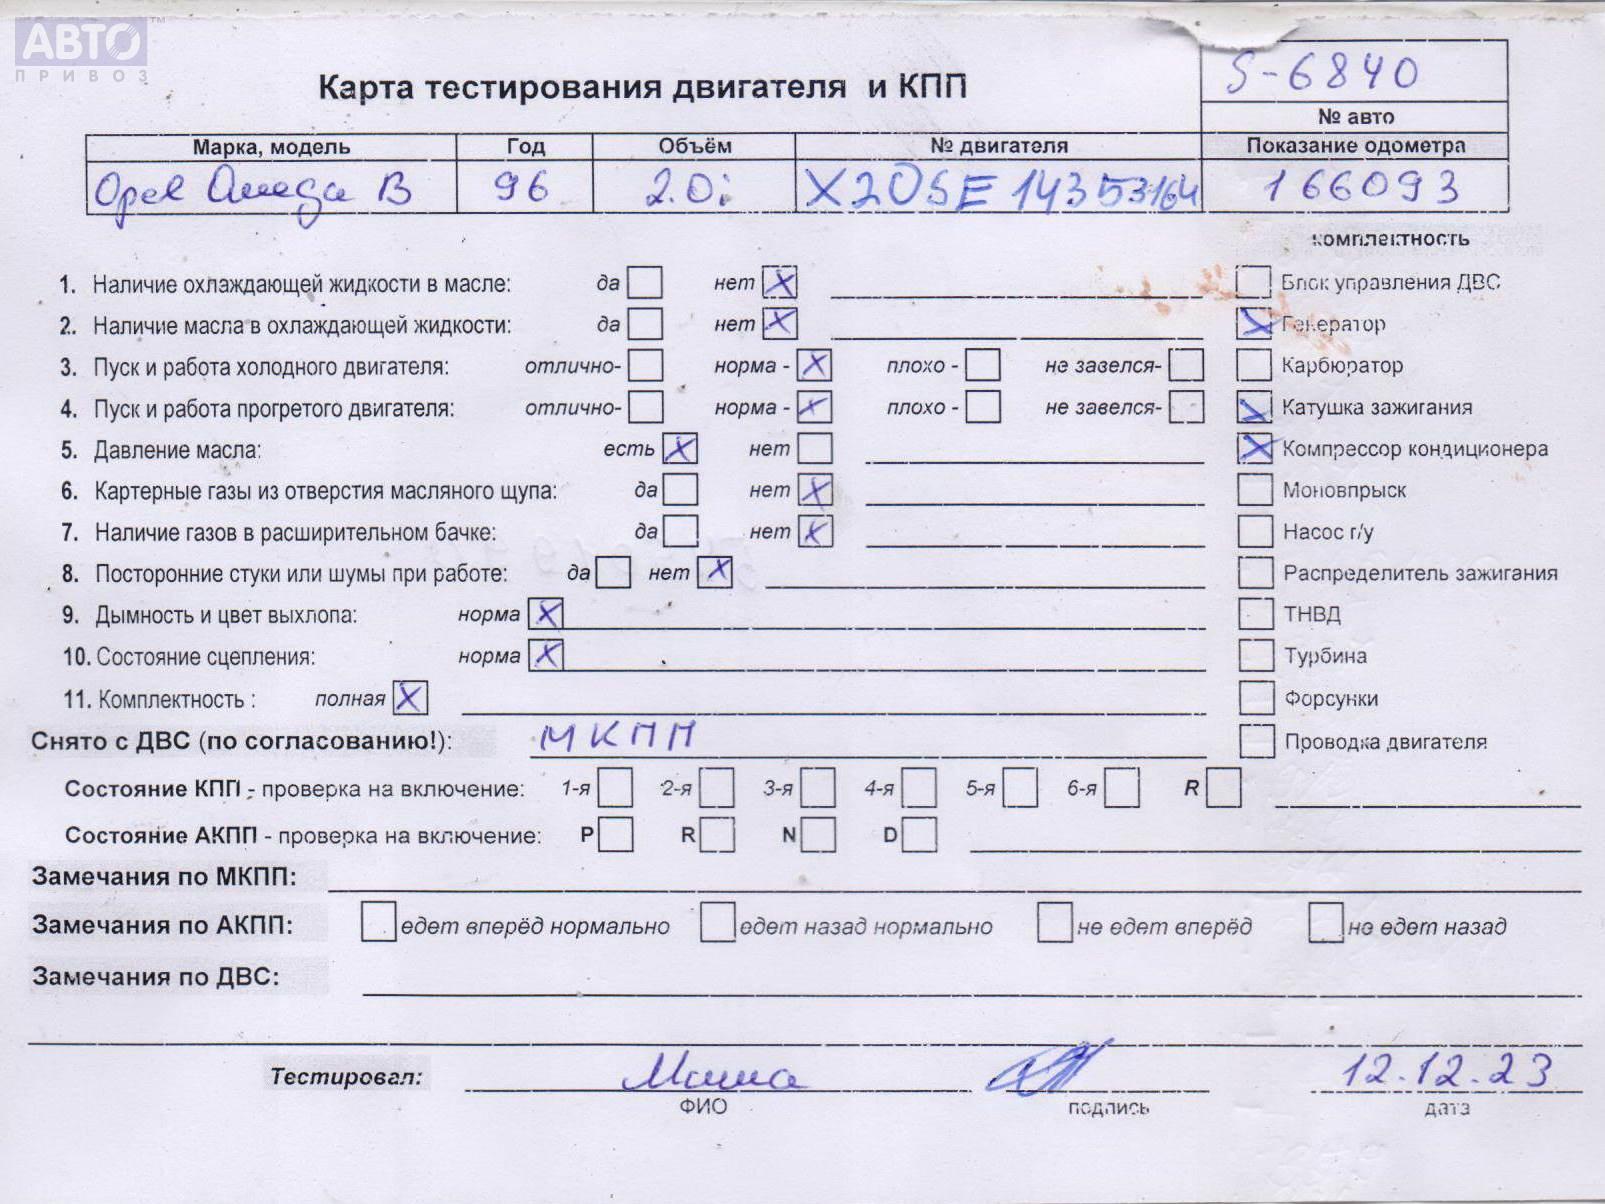 АВТО™
ПРИВОЗ
S-6840
Карта тестирования двигателя и КПП
№ авто
Марка, модель Год Объём № двигателя Показание одометра
Opel Omega B 96 2.0i X20SE 14353164 166093
комплектность
1. Наличие охлаждающей жидкости в масле: да нет X Блок управления ДВС
2. Наличие масла в охлаждающей жидкости: да нет X Генератор
3. Пуск и работа холодного двигателя: отлично- норма - X плохо - не завелся- Карбюратор
4. Пуск и работа прогретого двигателя: отлично- норма - X плохо - не завелся- Катушка зажигания
5. Давление масла: есть X нет Компрессор кондиционера
6. Картерные газы из отверстия масляного щупа: да нет X Моновпрыск
7. Наличие газов в расширительном бачке: да нет X Насос г/у
8. Посторонние стуки или шумы при работе: да нет X Распределитель зажигания
9. Дымность и цвет выхлопа: норма X ТНВД
10. Состояние сцепления: норма X Турбина
11. Комплектность : полная X Форсунки
Снято с ДВС (по согласованию!): МКПП Проводка двигателя
Состояние КПП - проверка на включение: 1-я 2-я 3-я 4-я 5-я 6-я R
Состояние АКПП - проверка на включение: P R N D
Замечания по МКПП:
Замечания по АКПП: едет вперёд нормально едет назад нормально не едет вперёд не едет назад
Замечания по ДВС:
Тестировал: 12.12.23
ФИО подпись дата